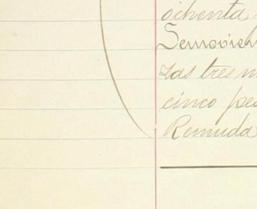 ochenta
Semovien
las tres m
cinco pes
Remuda